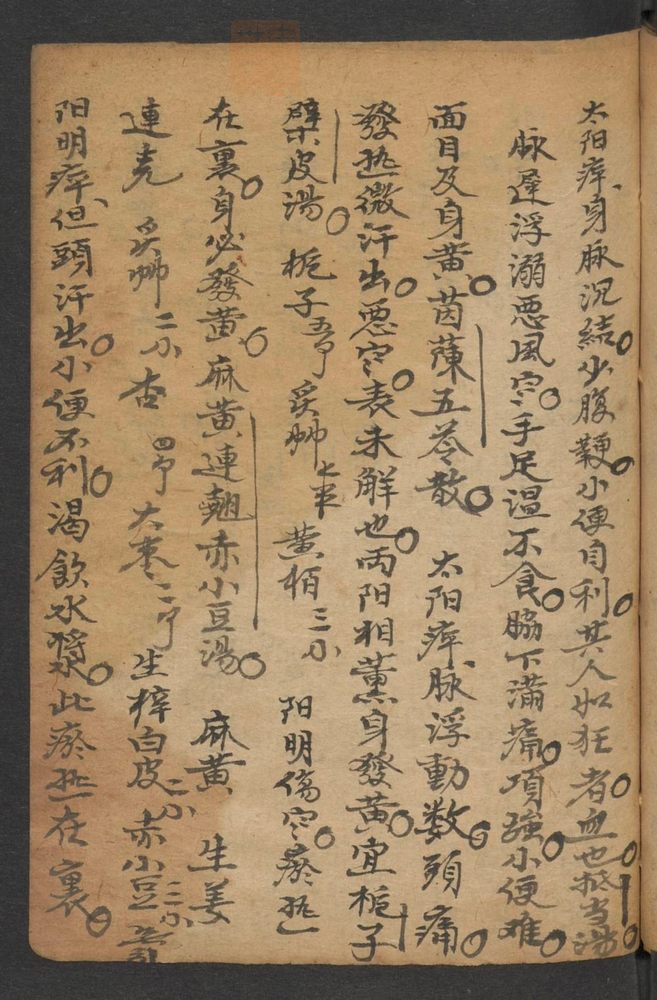 太阳痺、身脉沉結。少腹鞕。小便自利。其人如狂者。血也。抵当湯。
脉遲浮溺悪風寒。手足温不食。脇下滿痛。項强。小便难。
面目及身黄。茵蔯五苓散。 太阳痺、脉浮動数。頭痛。
發热微汗出。悪寒。表未解也。両阳相薫身發黄。宜栀子
檗皮湯。 栀子 炙艸 黄栢三小 阳明傷寒。瘀热
在裏。身必發黄。麻黄連翹赤小豆湯。 麻黄 生姜
連壳 炙艸二小 杏 大枣 生梓白皮二小 赤小豆三小
阳明痺、但頭汗出。小便不利。渴飲水漿。此瘀热在裏。